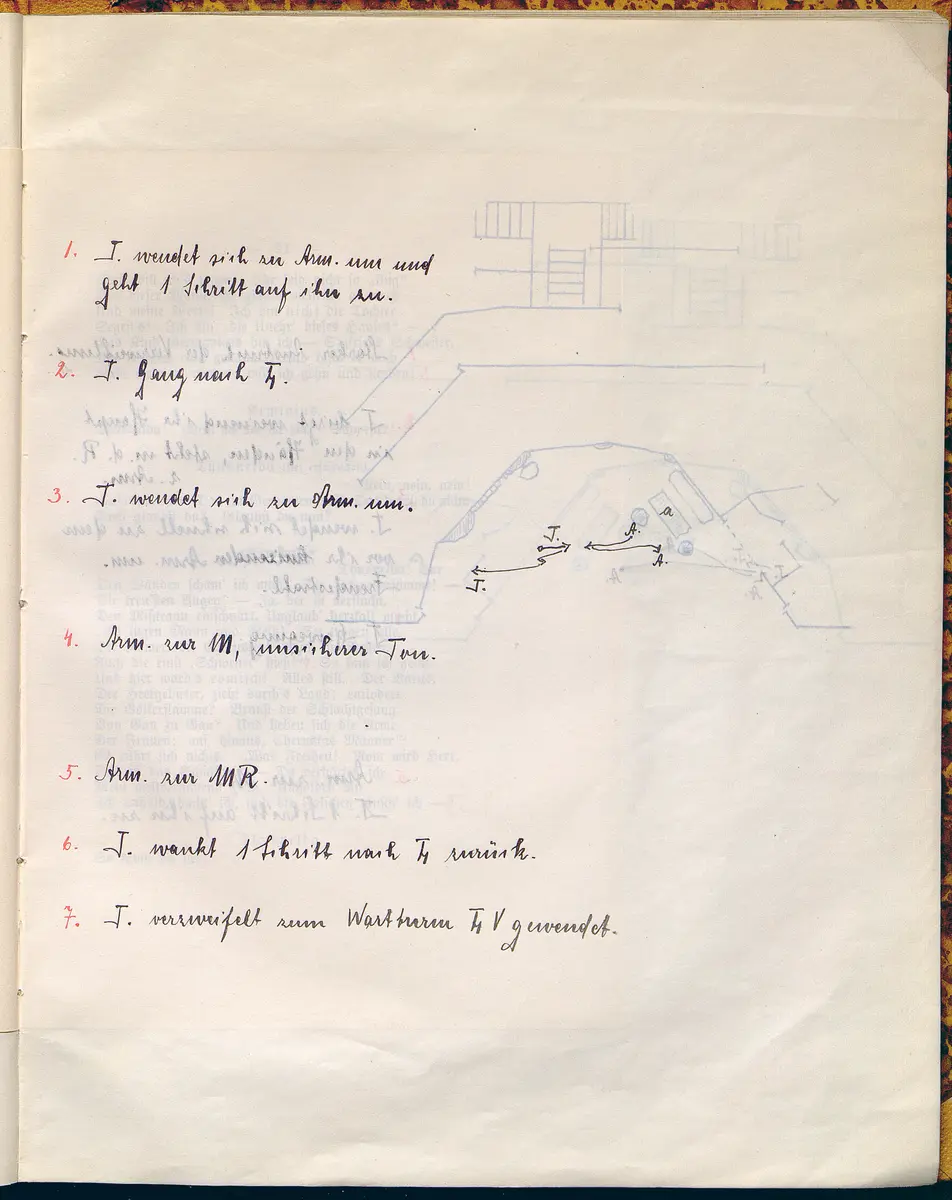 1. T. wendet sich zu Arm. um und
geht 1 Schritt auf ihn zu.
2. T. Gang nach
3. T. wendet sich zu Arm. um.
4. Arm. zur M, unsicherer Ton.
5. Arm. zur MR.
6. T. wankt 1 Schritt nach zurück.
7. T. verzweifelt zum Wartturm V gewendet.
a
T.
A.
A.
T.